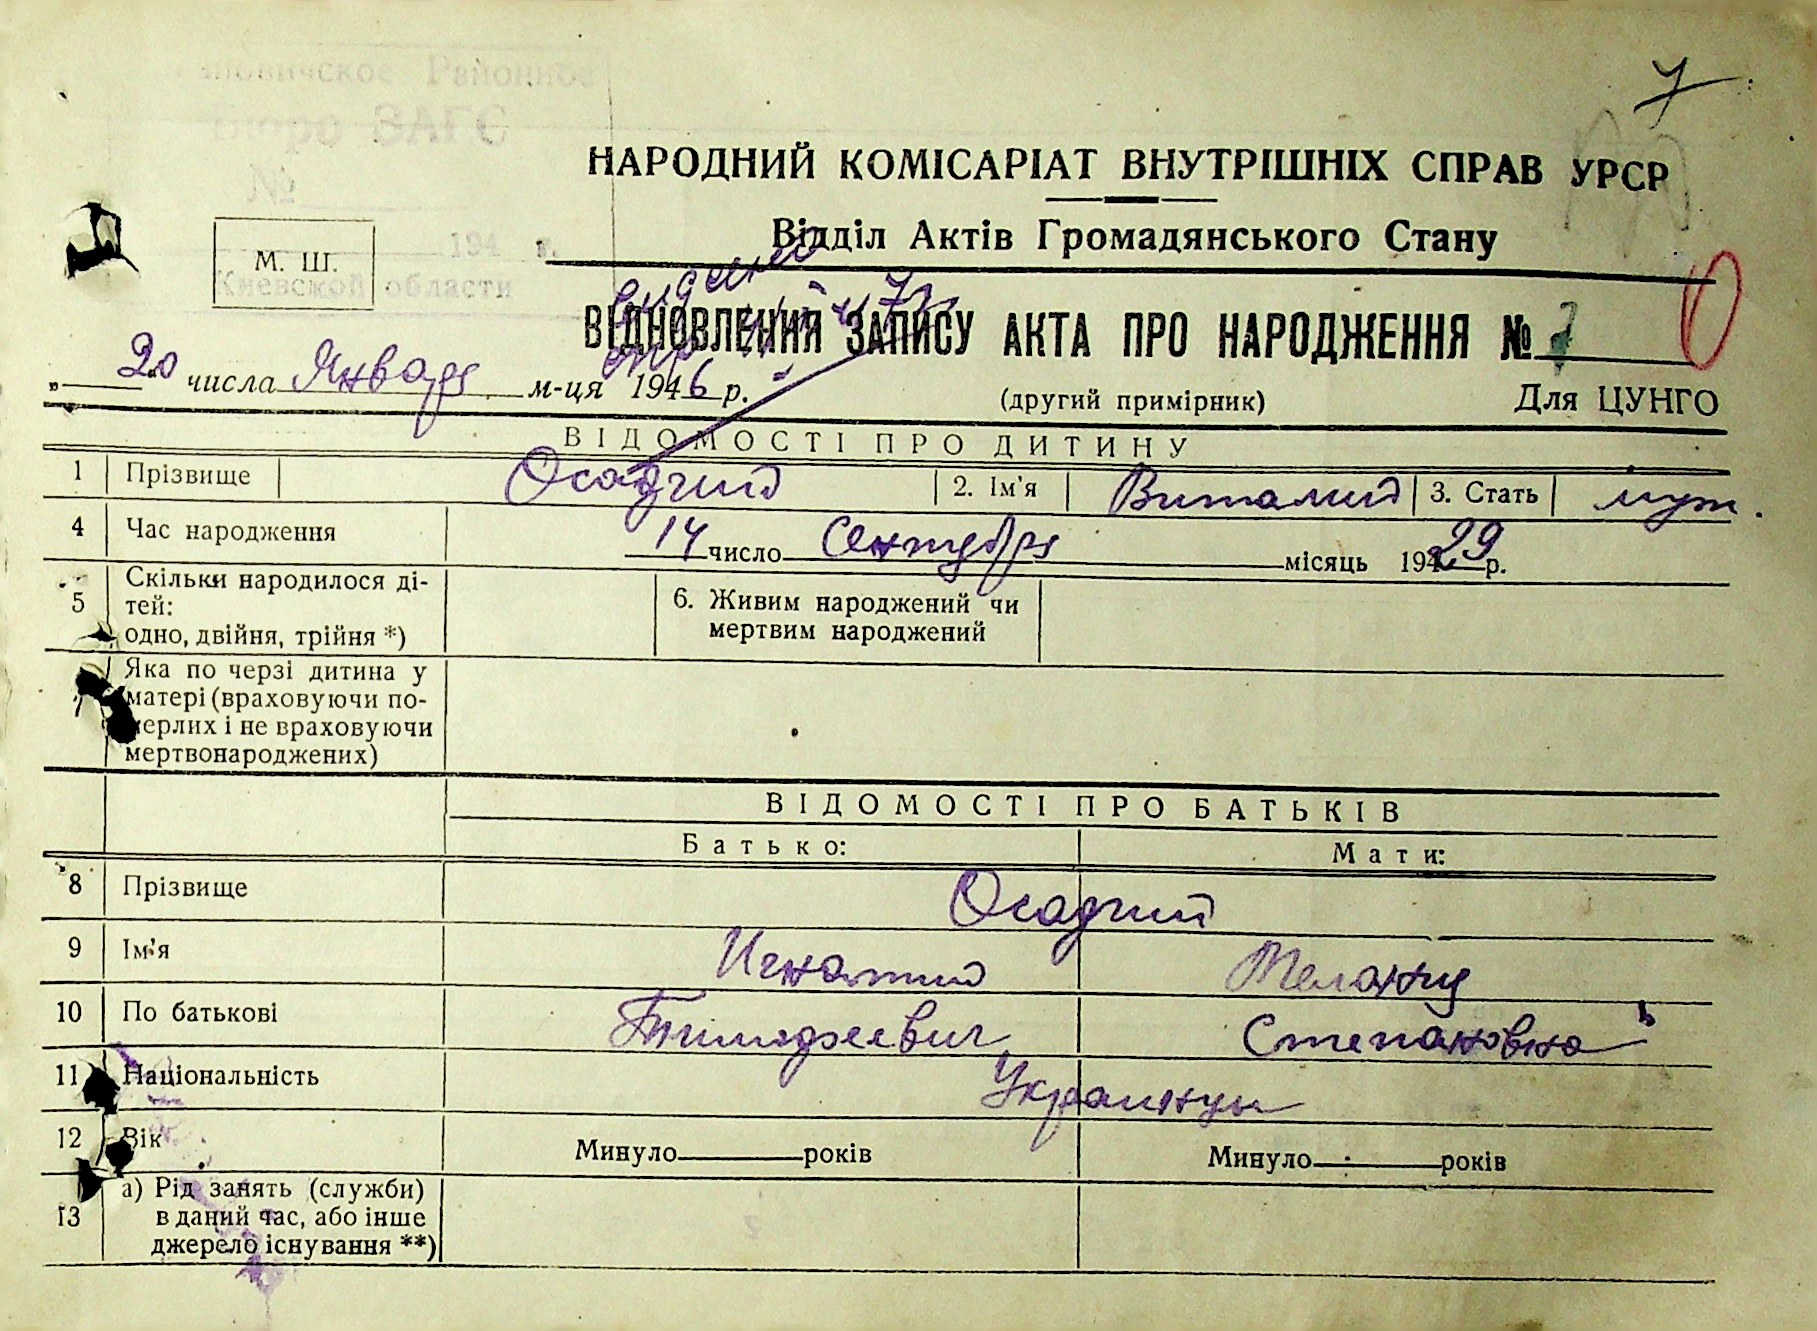 7
НАРОДНИЙ КОМІСАРІАТ ВНУТРІШНІХ СПРАВ УРСР
Відділ Актів Громадянського Стану
М. Ш.
194 г.
Киевской области
Районное
Бюро ЗАГС
№
ВІДНОВЛЕННЯ ЗАПИСУ АКТА ПРО НАРОДЖЕННЯ № 7
„ 20 числа Января м-ця 1946 р.
(другий примірник) Для ЦУНГО
ВІДОМОСТІ ПРО ДИТИНУ
1 Прізвище Осадчий 2. Ім'я Виталий 3. Стать муж.
4 Час народження 14 число Сентября місяць 1929 р.
5 Скільки народилося ді-
тей:
одно, двійня, трійня *)
6. Живим народжений чи
мертвим народжений
Яка по черзі дитина у
матері (враховуючи по-
мерлих і не враховуючи
мертвонароджених)
ВІДОМОСТІ ПРО БАТЬКІВ
Батько: Мати:
8 Прізвище Осадчий
9 Ім'я Игнатий Мелания
10 По батькові Тимофеевич Степановна
11 Національність Украинцы
12 Вік Минуло років Минуло років
13 а) Рід занять (служби)
в даний час, або інше
джерело існування **)